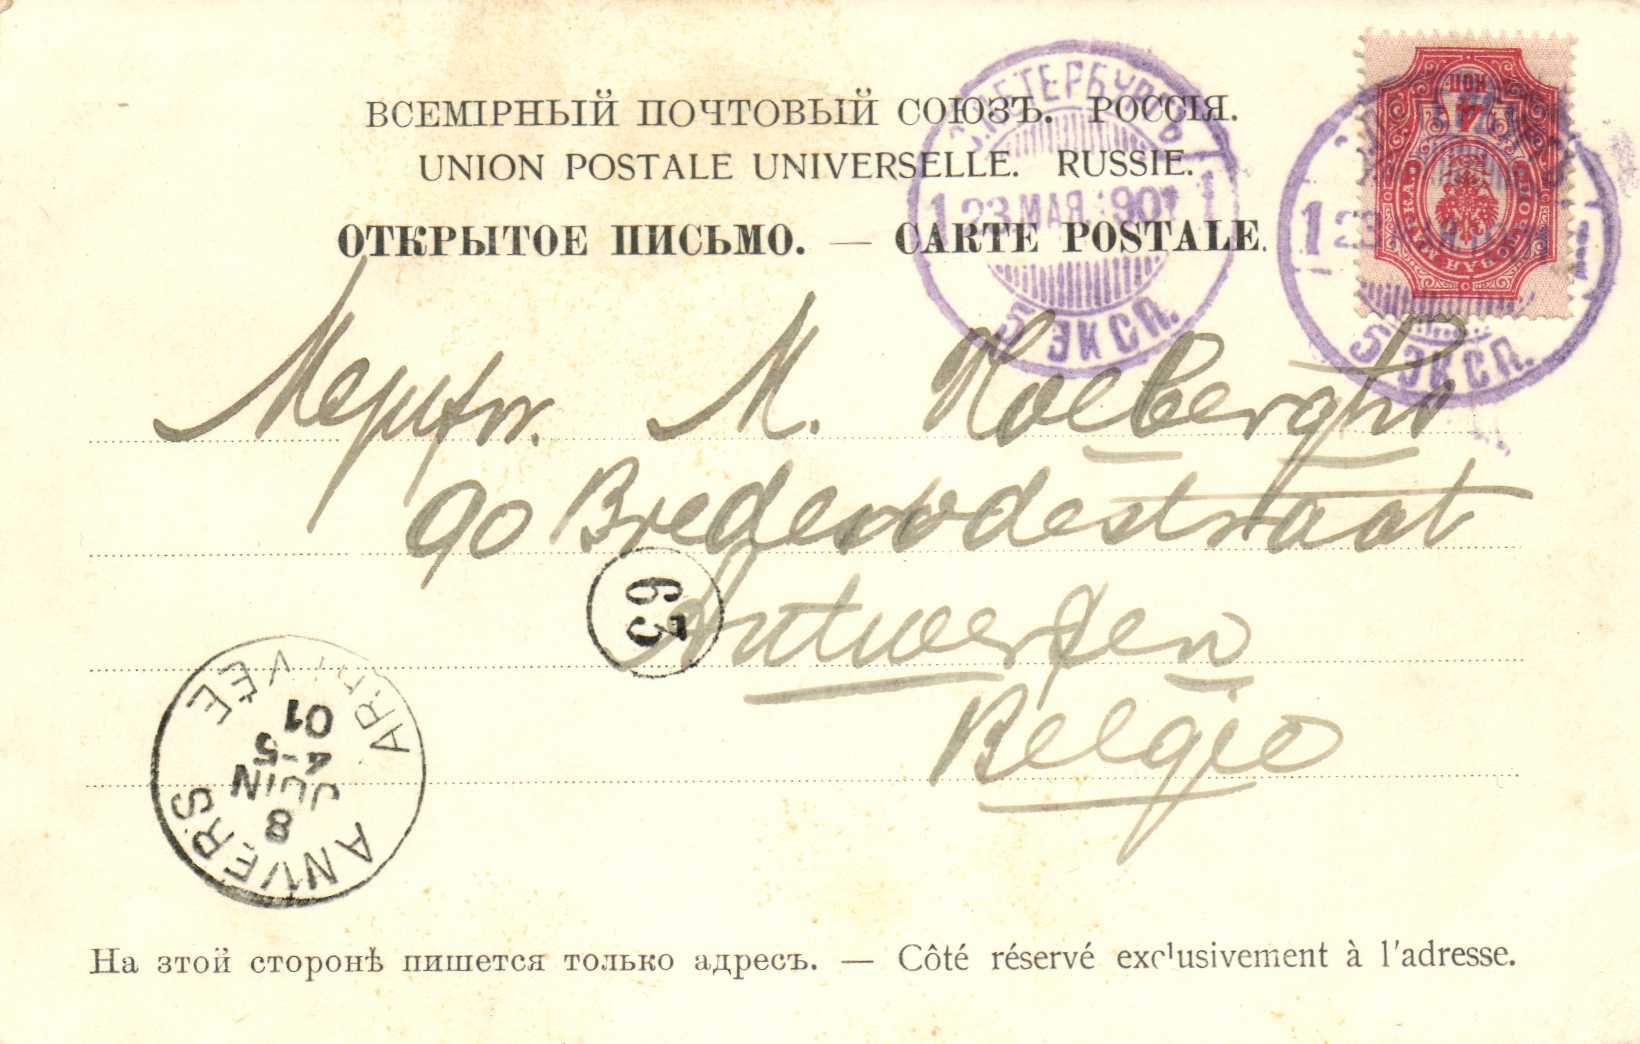 ВСЕМІРНЫЙ ПОЧТОВЫЙ СОЮЗЪ. РОССІЯ.
UNION POSTALE UNIVERSELLE. RUSSIE.
ОТКРЫТОЕ ПИСЬМО. — CARTE POSTALE.
С.ПЕТЕРБУРГЪ
1 23 МАЯ.1901 1
5 ЭКСП.
4 КОП
ПОЧТОВАЯ МАРКА
1 23
5 ЭКСП.
Mejufvr. M. Hoeberghs
90 Brederodestraat
63
Antwerpen
Belgie
ANVERS
8
JUIN
4-5
01
ARRIVÉE
На этой сторонѣ пишется только адресъ. — Côté réservé exclusivement à l'adresse.